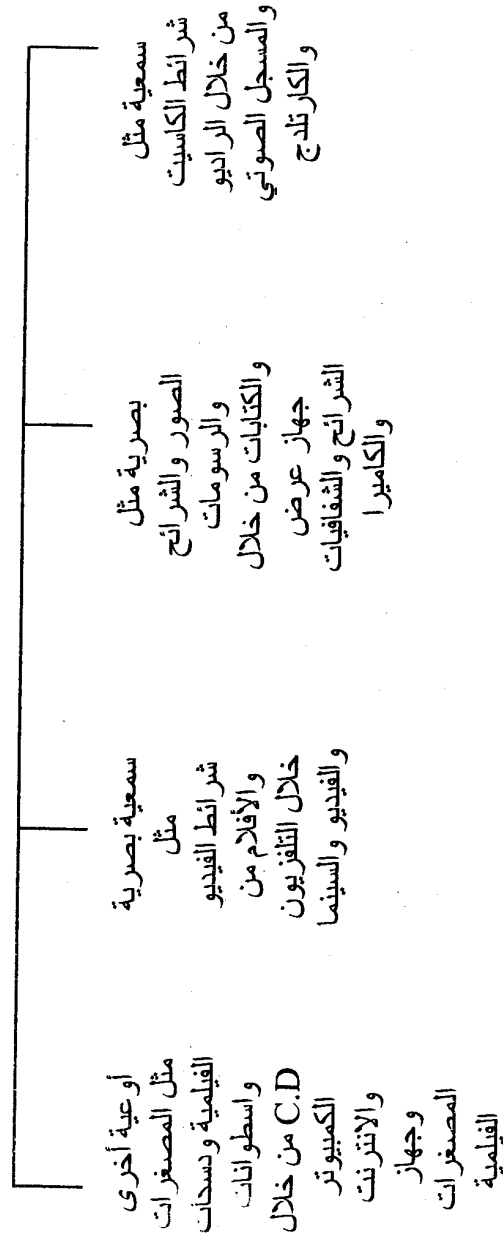 سمعية مثل
شرائط الكاسيت
من خلال الراديو
والمسجل الصوتي
والكارتلدج
بصرية مثل
الصور والشرائح
والرسومات
والكتابات من خلال
جهاز عرض
الشرائح والشفافيات
والكاميرا
سمعية بصرية
مثل
شرائط الفيديو
والأفلام من
خلال التلفزيون
والفيديو والسينما
أوعية أخرى
مثل المصغرات
الفيلمية ودسكات
واسطوانات
C.D من خلال
الكمبيوتر
والانترنت
وجهاز
المصغرات
الفيلمية